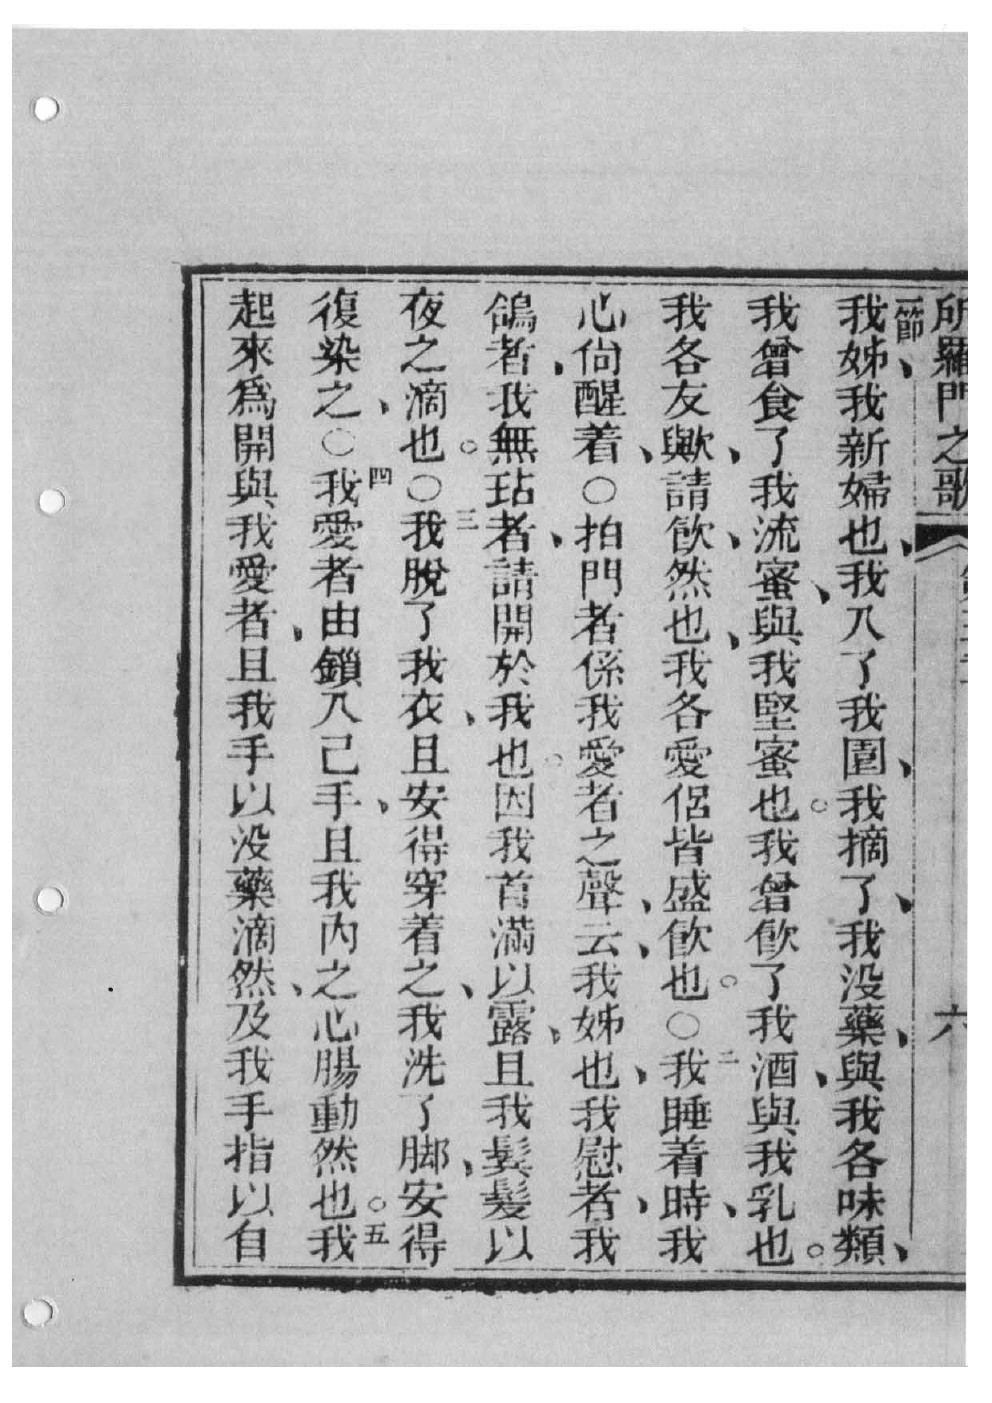 所羅門之歌 六
一節我姊我新婦也、我入了我園、我摘了、我没藥、與我各味類、
我曾食了我流蜜、與我堅蜜也。我曾飲了我酒、與我乳也。
我各友歟、請飲、然也、我各愛侶皆盛飲也。○二我睡着時、我
心尙醒着、○拍門者係我愛者之聲、云、我姊也、我慰者、我
鴿者、我無玷者、請開於我也。因我首滿以露、且我鬂髮以
夜之滴也。○三我脫了我衣、且安得穿着之、我洗了脚、安得
復染之、○四我愛者由鎖入己手、且我內之心腸動然也。五我
起來爲開與我愛者、且我手以没藥滴然、及我手指以自